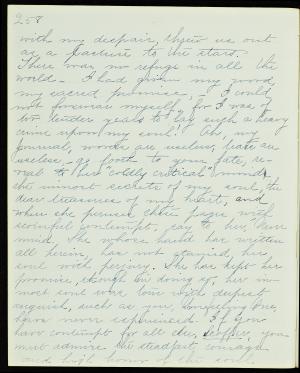 258
with my despair, threw us out
as a
There was no refuge in all the
world. I had given my word,
my sacred promise, - I could
not forswear myself, for I was of
too tender years to lay such a heavy
crime upon my soul! Oh, my
journal, words are useless, tears are
useless, - go forth to your fate, re-
veal to her "coldly critical" mind,
the inmost secrets of my soul, the
dear treasures of my heart, and
when she peruses these pages with
scornful contempt, say to her, "Never
mind. She whose hand has written
all herein, has not stained her
soul with perjury. She has kept her
promise, though in doing it, her in-
most soul was torn with deepest
anguish, such as you, perhaps,
have never experienced. If you
have contempt for all else, scoffer, you
must admire the steadfast courage
and high honor of the soul